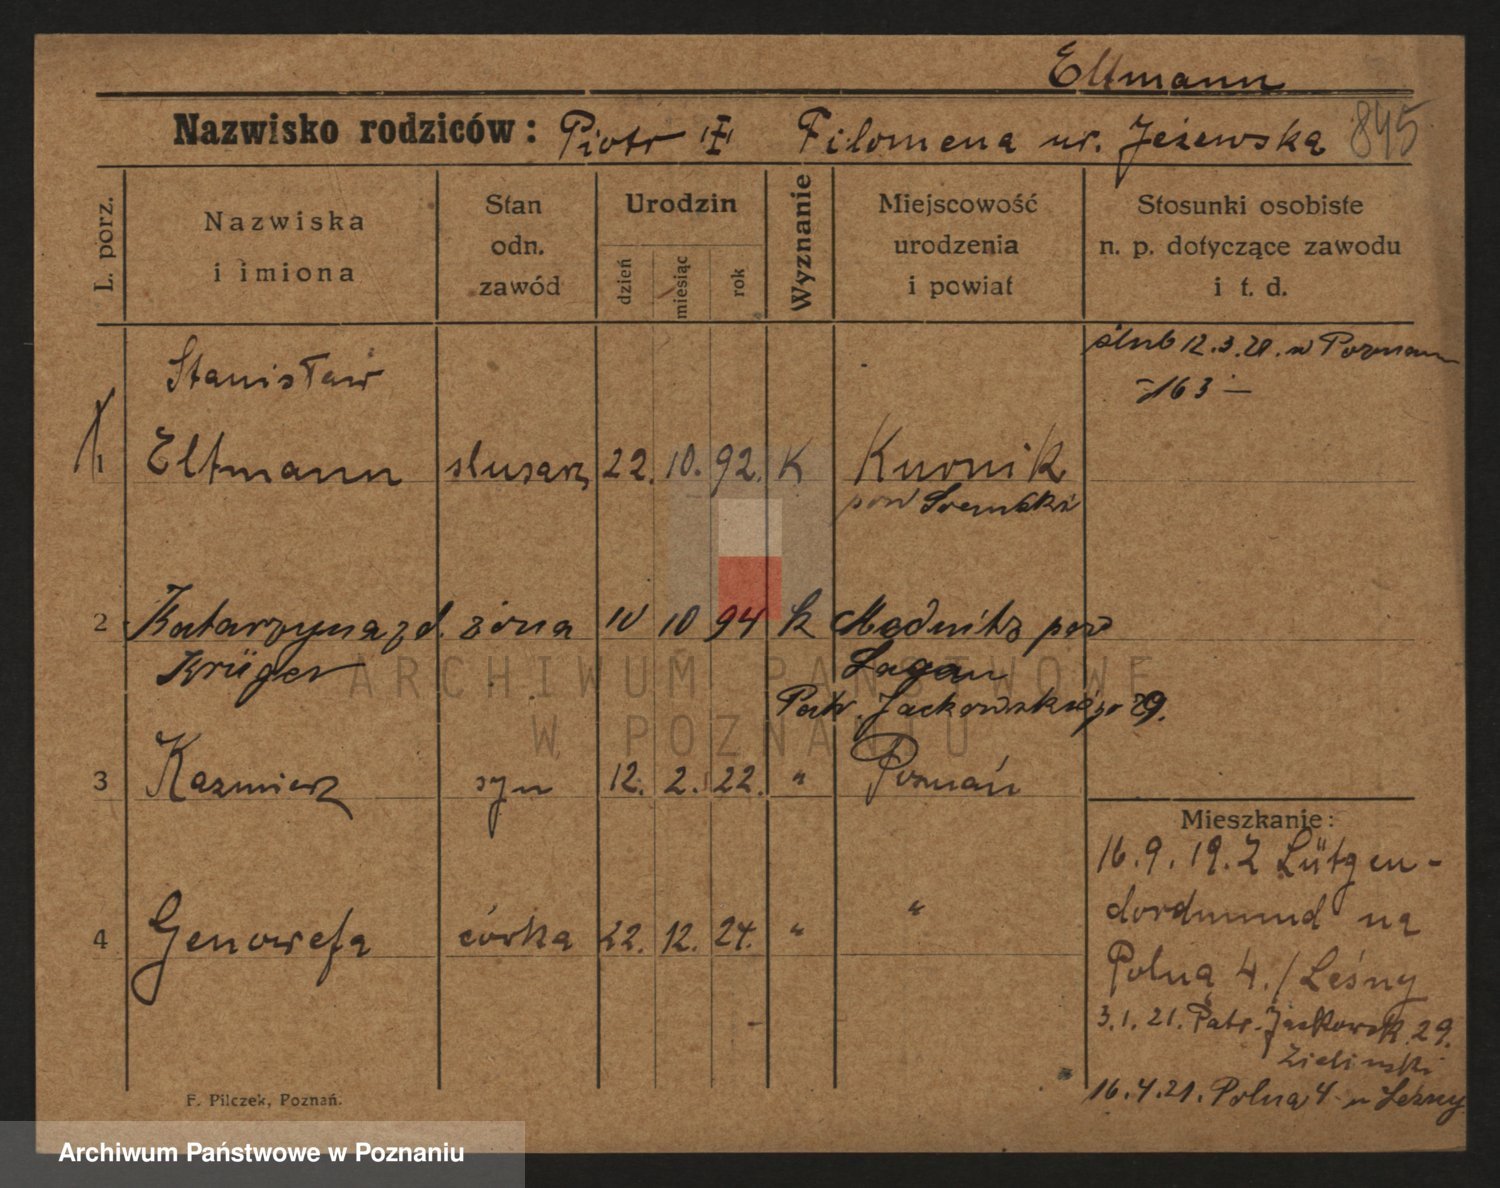 Eltmann
Nazwisko rodziców: Piotr Filomena ur. Jeżewska 845
L. porz.
Nazwiska
i imiona
Stan
odn.
zawód
Urodzin
dzień
miesiąc
rok
Wyznanie
Miejscowość
urodzenia
i powiat
Stosunki osobiste
n. p. dotyczące zawodu
i t. d.
ślub 12.3.21. w Poznaniu
163
Stanisław
1 Eltmann slusarz 22. 10. 92. K Kurnik
pow Śremski
2 Katarzyna zd. żona 10 10 94 k Mednitz pow
Krüger Sagan
Patr. Jackowskiego 29.
3 Kazmierz syn 12. 2. 22. " Poznań
4 Genowefa córka 22. 12. 24. " "
Mieszkanie:
16.9.19. Z Lütgen-
dordmund na
Polną 4. / Leśny
3.1.21. Patr. Jackowsk. 29.
Zielinski
16.4.21. Polna 4 u Leśny
F. Pilczek, Poznań.
ARCHIWUM PAŃSTWOWE
W POZNANIU
Archiwum Państwowe w Poznaniu